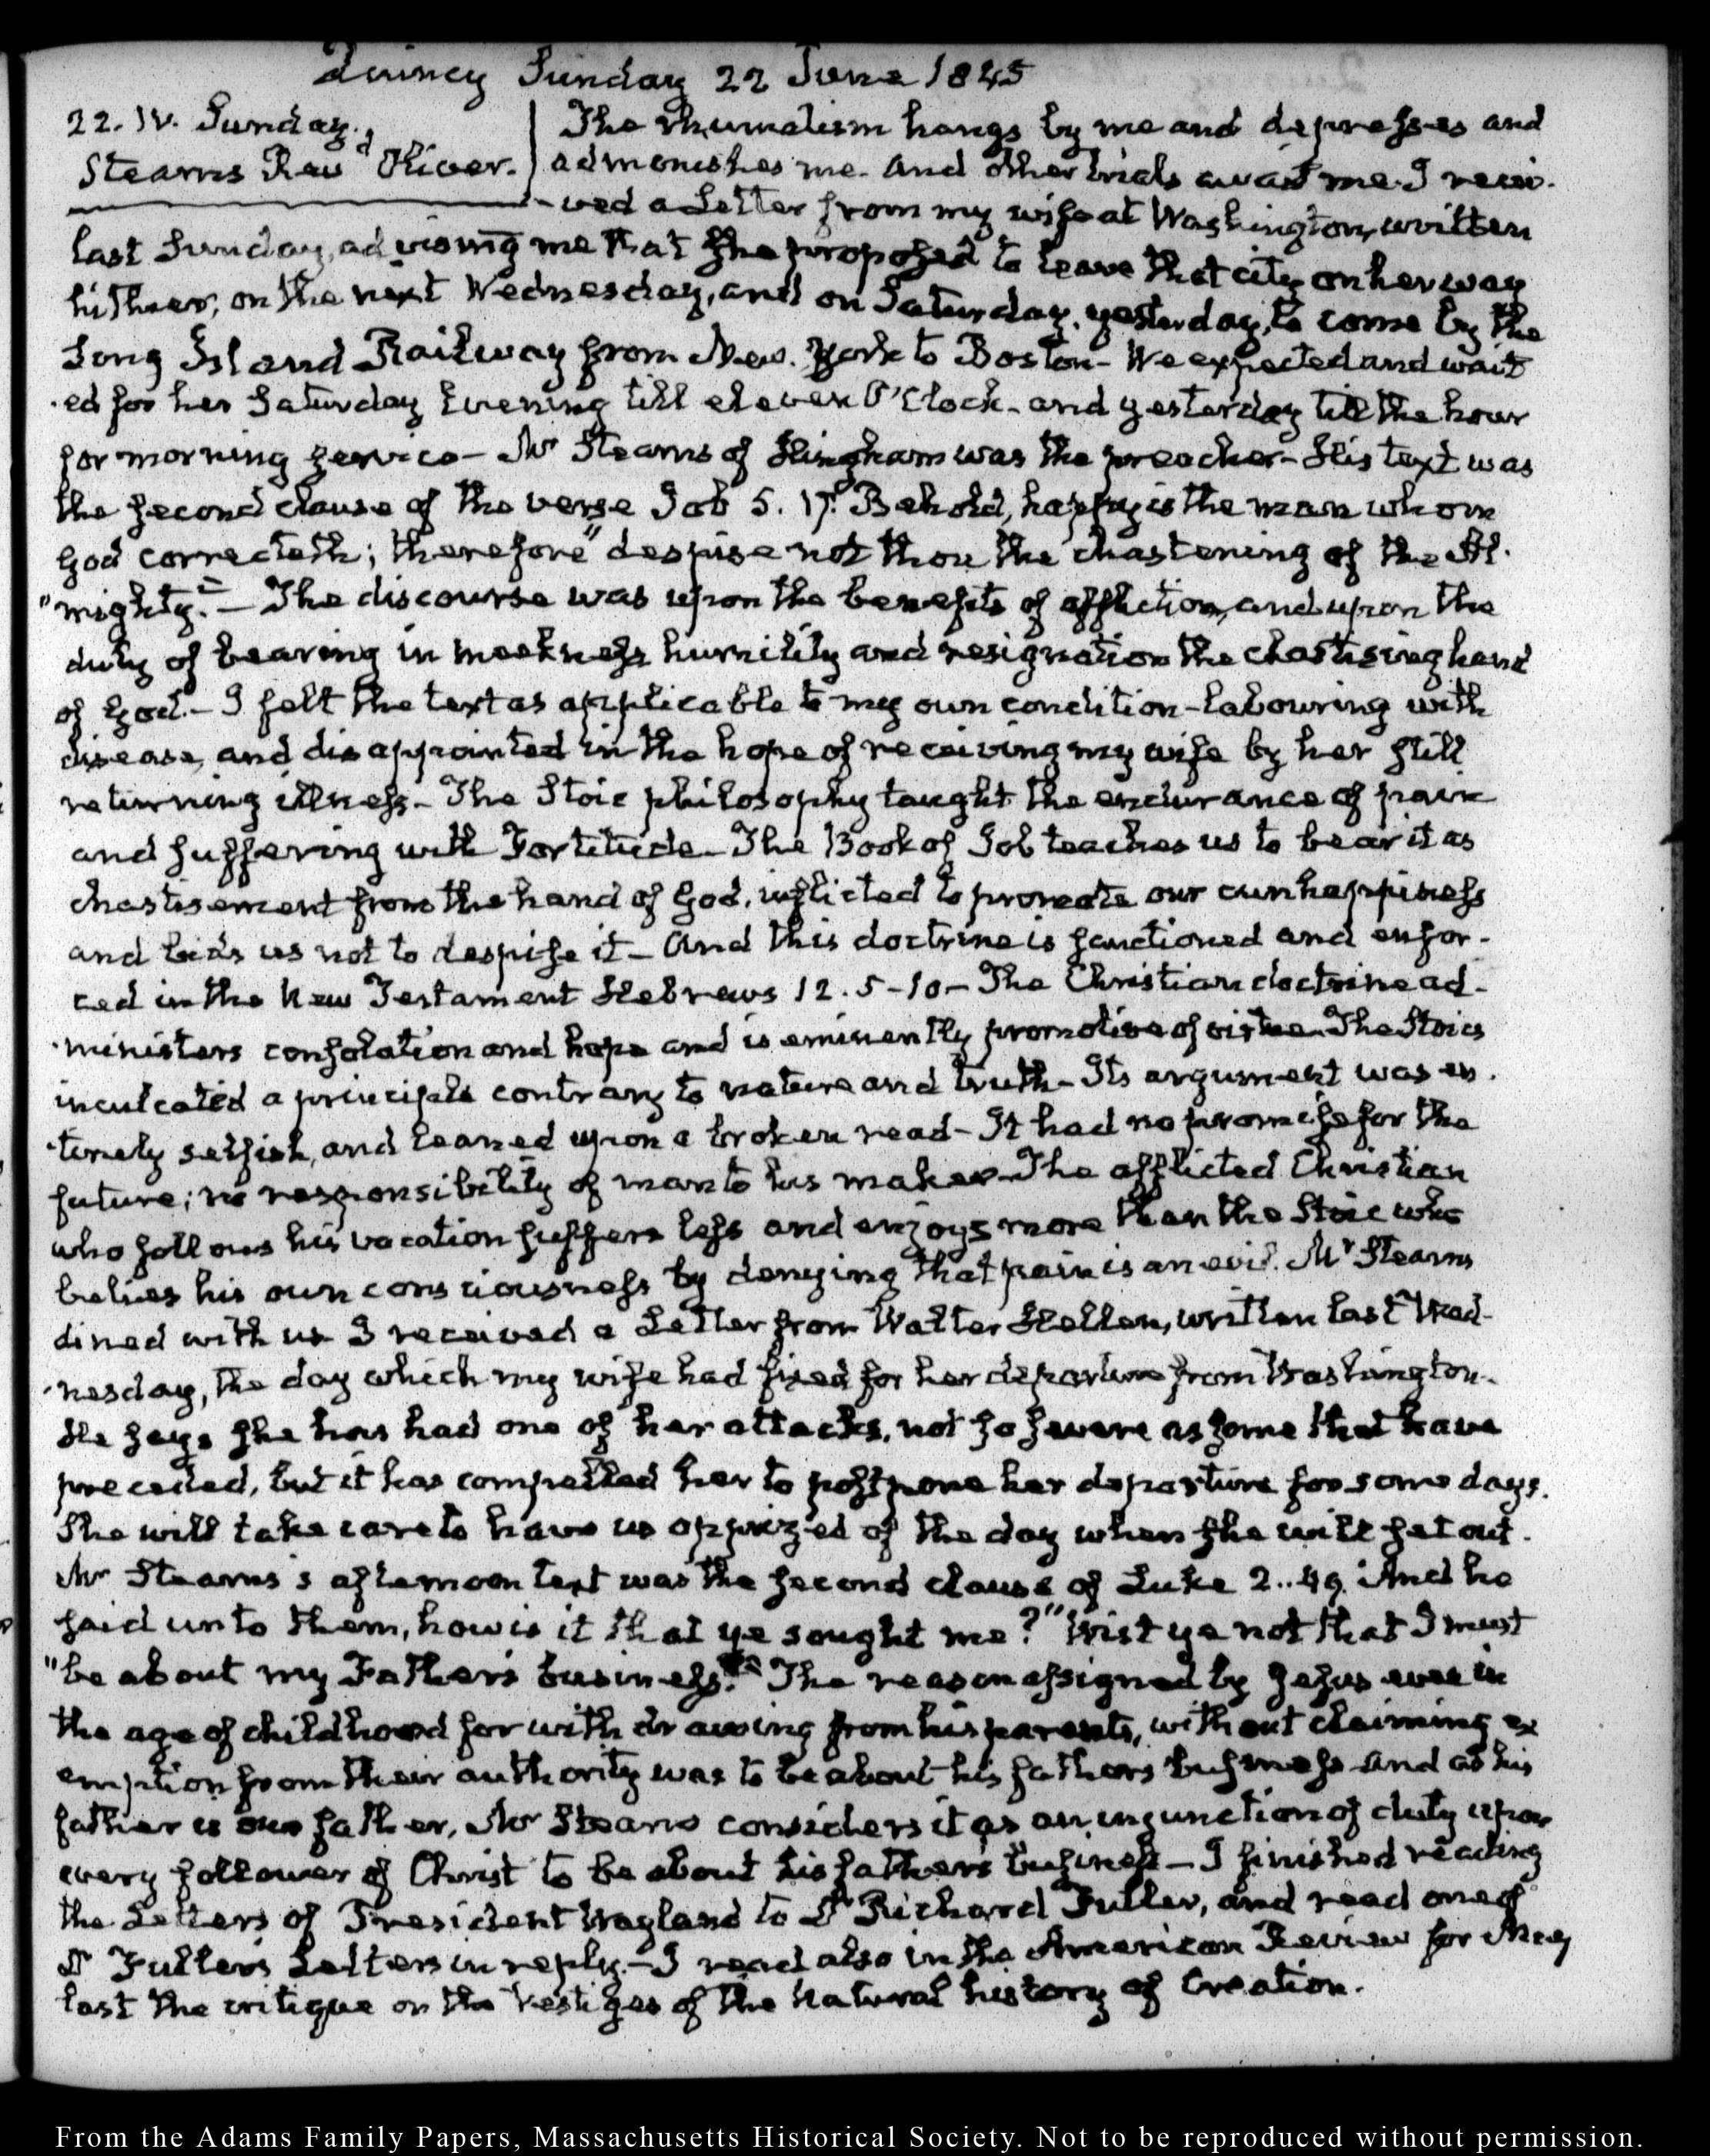 Quincy Sunday 22 June 1845
22. IV. Sunday.
Stearns Revd Oliver.
The rhumatism hangs by me and depresses and
admonishes me. And other trials await me. I recei-
-ved a Letter from my wife at Washington, written
last Sunday, advising me that she proposed to leave that city on her way
hither, on the next Wednesday, and on Saturday, yesterday, to come by the
Long Island Railway from New-York to Boston- We expected and wait
-ed for her Saturday Evening till eleven O'Clock- and yesterday till the hour
for morning service- Mr Stearns of Hingham was the preacher- His text was
the second clause of the verse Job 5. 17. Behold, happy is the man whom
God correcteth; therefore "despise not thou the chastening of the Al-
"mighty."- The discourse was upon the benefits of affliction, and upon the
duty of bearing in meekness humility and resignation the chastising hand
of God.- I felt the text as applicable to my own condition- labouring with
disease, and disappointed in the hope of receiving my wife by her still
returning illness- The Stoic philosophy taught the endurance of pain
and suffering with Fortitude- The Book of Job teaches us to bear it as
chastisement from the hand of God, inflicted to promote our own happiness
and bids us not to despise it- And this doctrine is sanctioned and enfor-
ced in the New Testament Hebrews 12. 5-10- The Christian doctrine ad-
-ministers consolation and hope and is eminently promotive of virtue- The Stoics
inculcated a principle contrary to nature and truth- Its argument was en-
-tirely selfish, and leaned upon a broken read- It had no promise for the
future; no responsibility of man to his maker- The afflicted Christian
who follows his vocation suffers less and enjoys more than the Stoic who
belies his own consciousness by denying that pain is an evil. Mr Stearns
dined with us I received a Letter from Walter Hellen, written last Wed-
-nesday, the day which my wife had fixed for her departure from Washington-
He says she has had one of her attacks, not so severe as some that have
preceded, but it has compelled her to postpone her departure for some days.
She will take care to have us apprized of the day when she will set out.
Mr Stearns's afternoon text was the second clause of Luke 2..49. And he
said unto them, how is it that ye sought me? "Wist ye not that I must
"be about my Father's business." The reason assigned by Jesus even in
the age of childhood for withdrawing from his parents, without claiming ex
emption from their authority was to be about his fathers business and as his
father is our father, Mr Stearns considers it as an injunction of duty upon
every follower of Christ to be about his father's business- I finished reading
the Letters of President Wayland to Dr Richard Fuller, and read one of
Dr Fuller's Letters in reply.- I read also in the American Review for May
last the critique on the Vestiges of the Natural history of Creation.
From the Adams Family Papers, Massachusetts Historical Society. Not to be reproduced without permission.